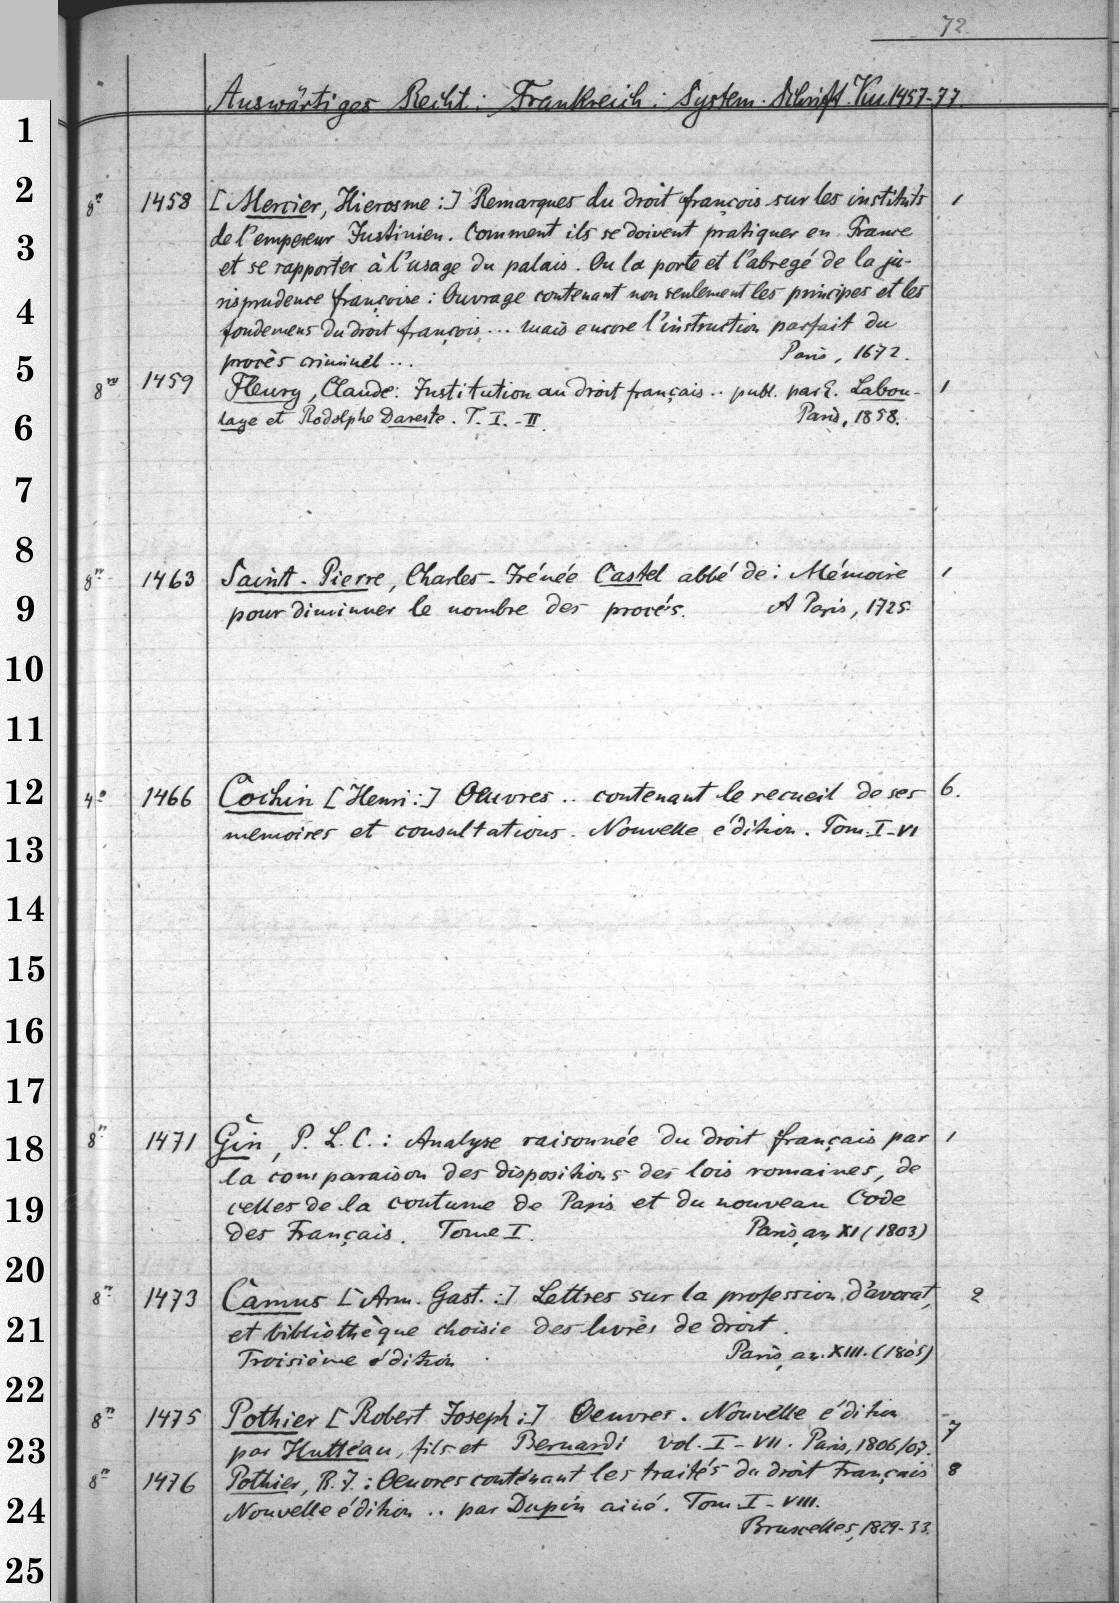 72.
Auswärtiges Recht: Frankreich: System. Schrift. Ku 1457-77.
1
2
8° 1458 [Mercier, Hierosme:] Remarques du droit françois sur les instituts 1
3
de l'empereur Justinien. Comment ils se doivent pratiquer en France
et se rapporter à l'usage du palais. Ou la porte et l'abregé de la ju-
4
risprudence françoise: Ouvrage contenant non seulement les principes et les
fondemens du droit françois... mais encore l'instruction parfait du
5
procès criminel... Paris, 1672.
8° 1459 Fleury, Claude: Institution au droit français.. publ. par E. Labou- 1
6
laye et Rodolphe Dareste. T. I.-II. Paris, 1858.
7
8
8° 1463 Saint-Pierre, Charles-Irénée Castel abbé de: Mémoire 1
9
pour diminuer le nombre des procés. A Paris, 1725.
10
11
12
4° 1466 Cochin [Henri:] Oeuvres.. contenant le recueil de ses 6.
13
memoires et consultations. Nouvelle édition. Tom. I-VI
14
15
16
17
18
8° 1471 Gin, P. L. C.: Analyse raisonnée du droit français par 1
la comparaison des dispositions des lois romaines, de
19
celles de la coutume de Paris et du nouveau Code
des Français. Tome I. Paris, an XI (1803)
20
8° 1473 Camus [Arm. Gast.:] Lettres sur la profession d'avocat, 2
21
et bibliothèque choisie des livres de droit.
Troisième édition. Paris, an. XIII. (1805)
22
8° 1475 Pothier [Robert Joseph:] Oeuvres. Nouvelle édition 7
23
par Hutteau, fils et Bernardi vol. I-VII. Paris, 1806/07.
8° 1476 Pothier, R. J.: Oeuvres contenant les traités du droit Français 8
24
Nouvelle édition.. par Dupin ainé. Tom. I-VIII.
Bruxelles, 1829-33.
25